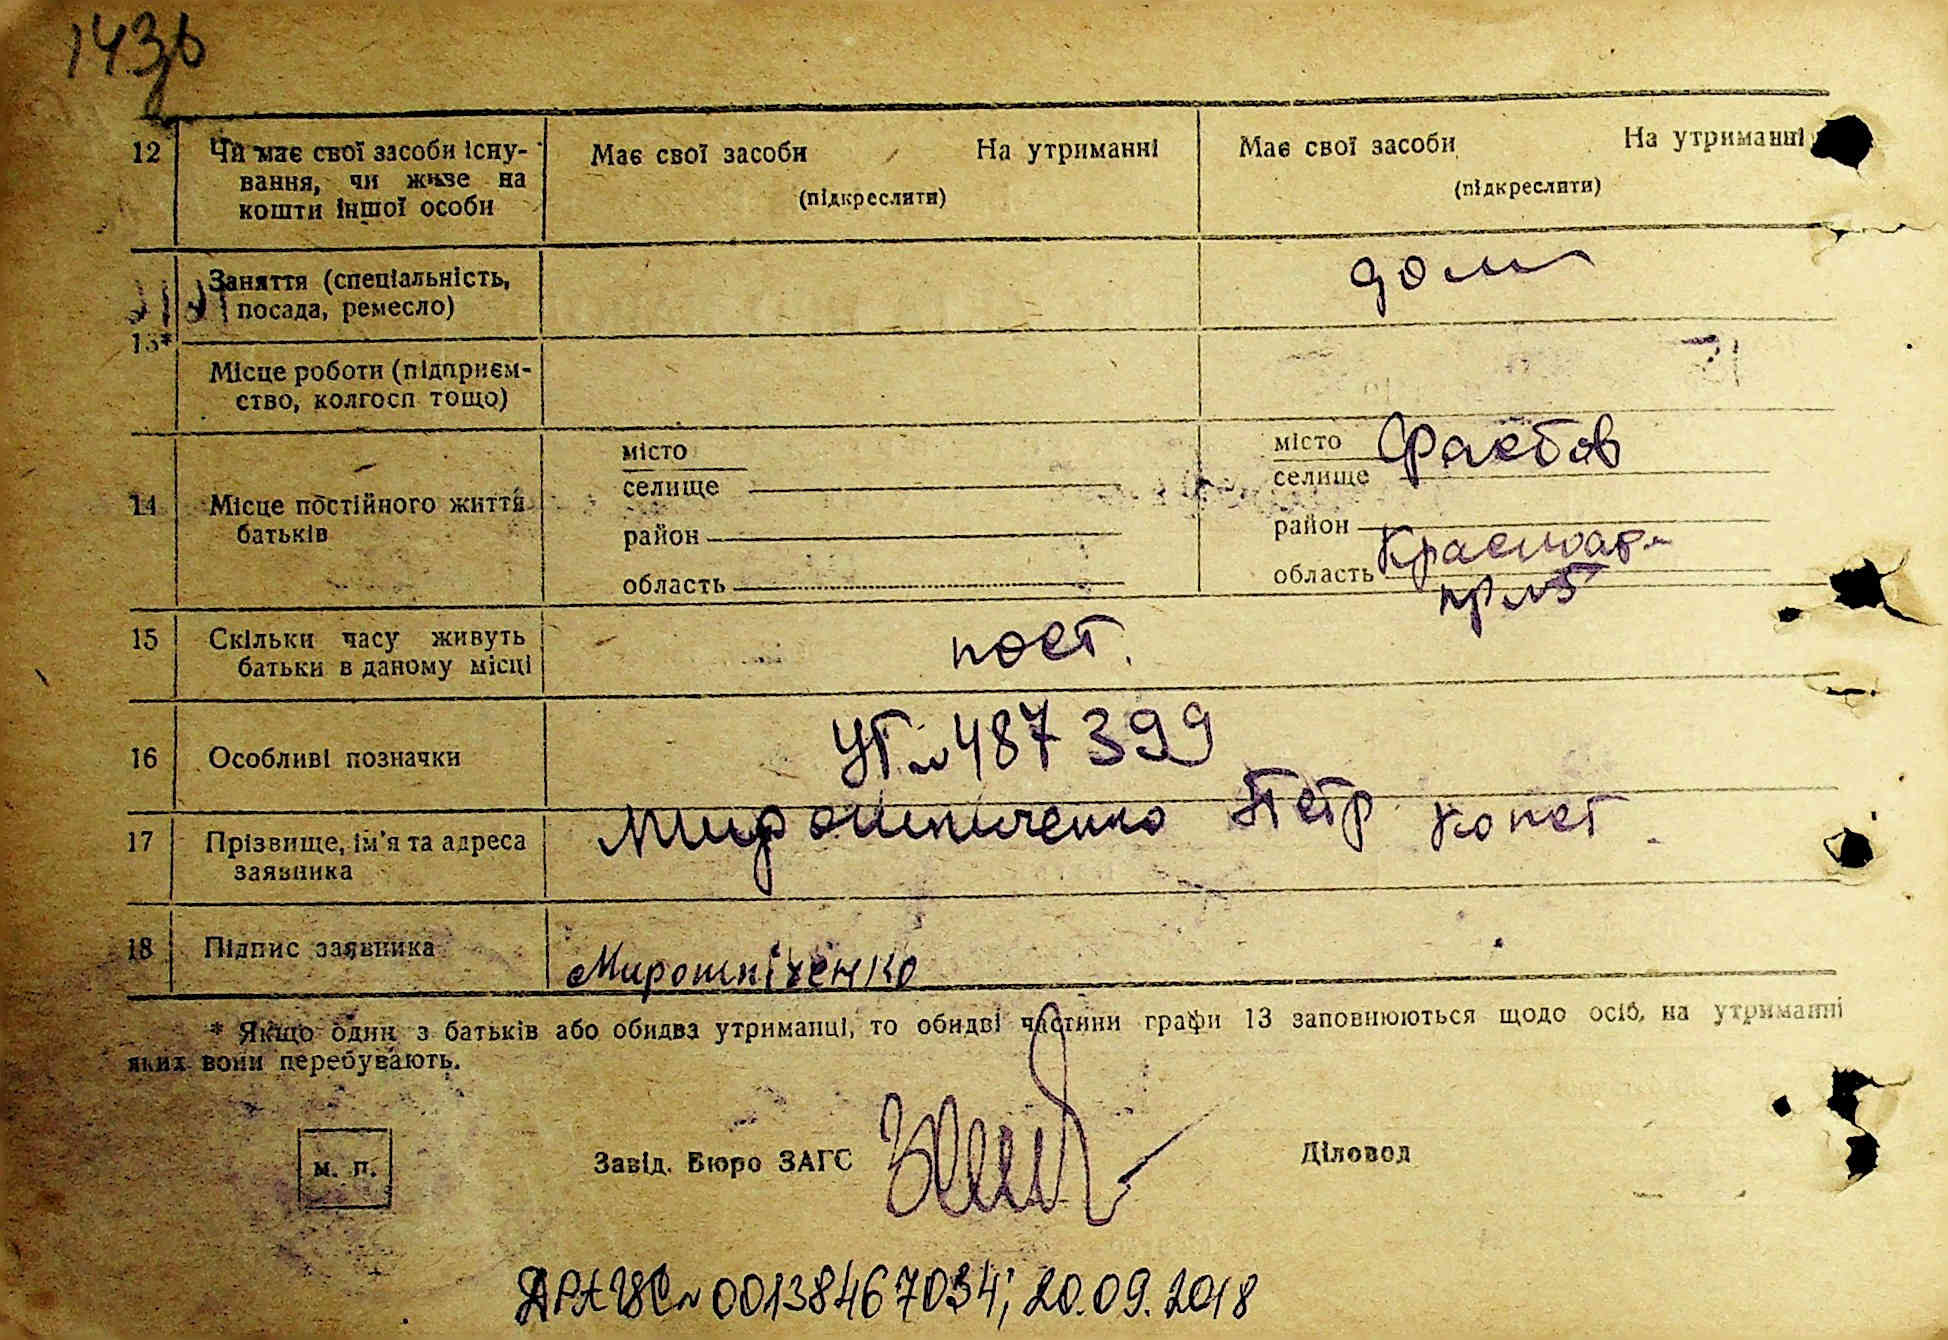 143б
12 Чи має свої засоби існу- Має свої засоби На утриманні Має свої засоби На утриманні
вання, чи живе на (підкреслити) (підкреслити)
кошти іншої особи
Заняття (спеціальність, дом
посада, ремесло)
13*
Місце роботи (підприєм-
ство, колгосп тощо)
місто місто
селище селище
14 Місце постійного життя
батьків
район район
область область
15 Скільки часу живуть пост.
батьки в даному місці
16 Особливі позначки № 487399
17 Прізвище, ім'я та адреса Мирошниченко Петр
заявника
18 Підпис заявника Мирошніченко
* Якщо один з батьків або обидва утриманці, то обидві частини графи 13 заповнюються щодо осіб, на утриманні
яких вони перебувають.
м. п. Завід. Бюро ЗАГС Діловод
ДРАЦС № 00138467034; 20.09.2018